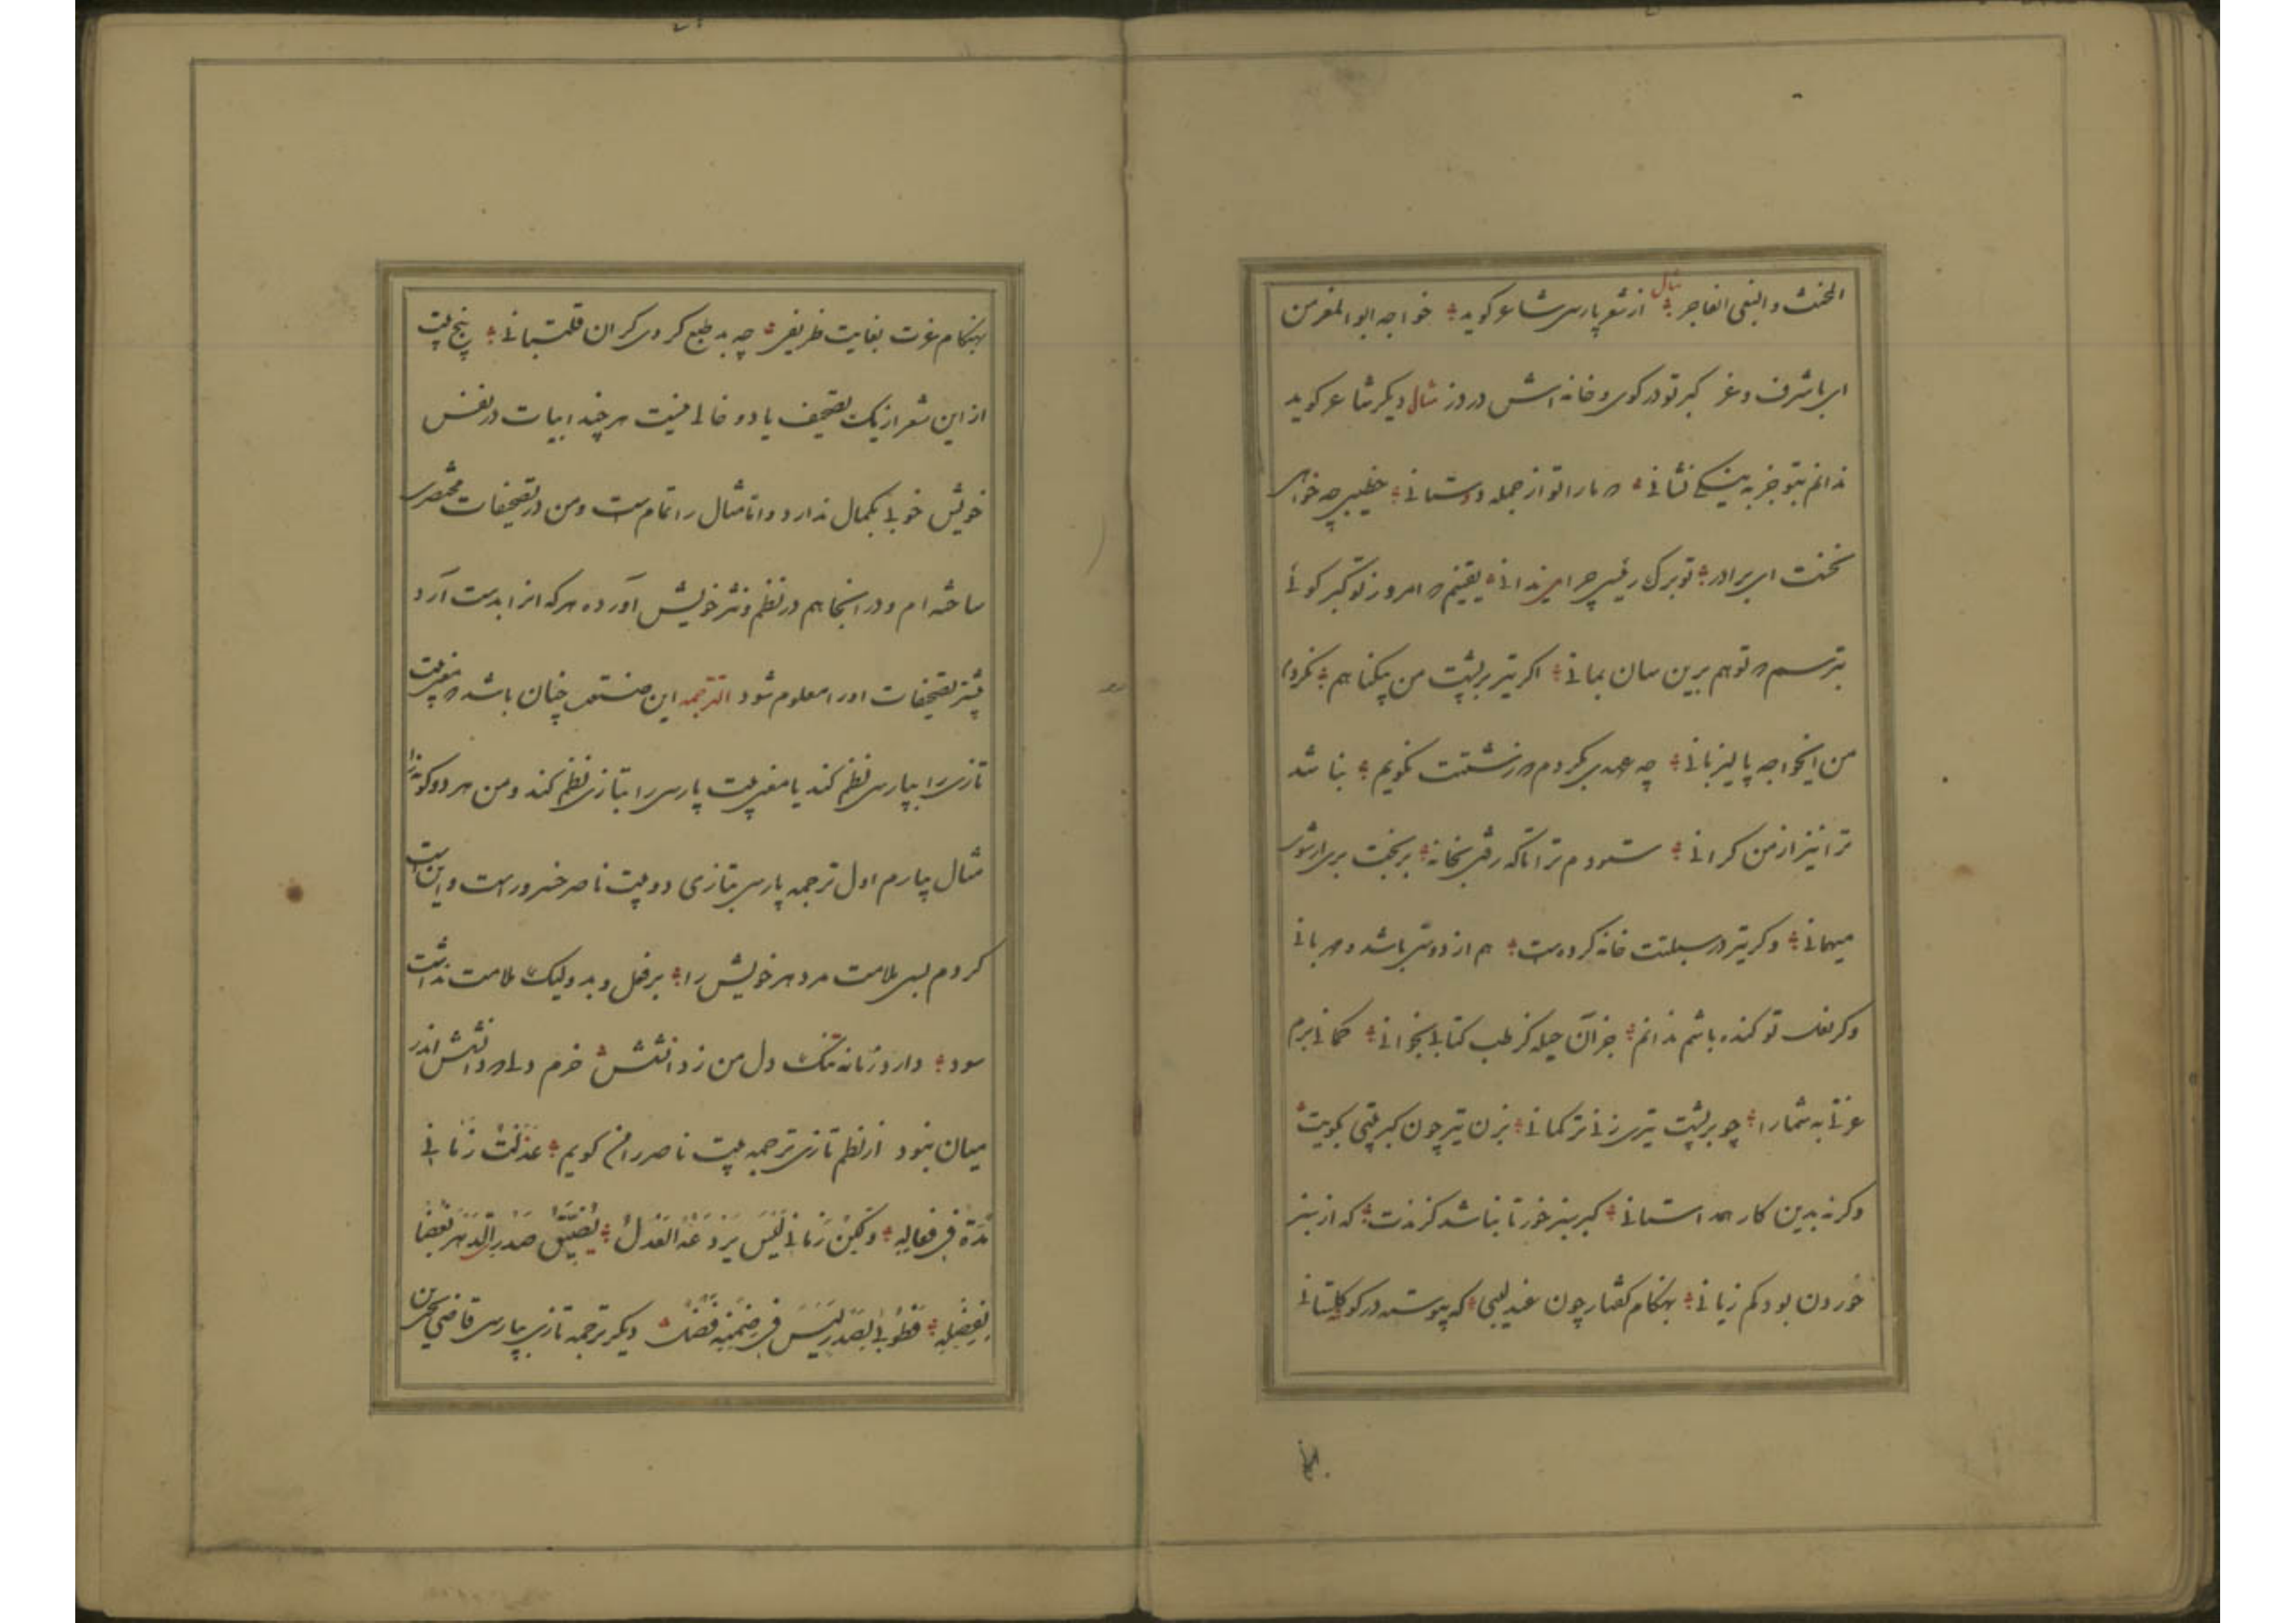 المخنث والبغی الفاجر ؞ مثال از شعر پارسی شاعر کوید ؞ خواجه ابوالمغر من
ای باشرف وغر کبر تو در کوی وخانه اش در وز مثال دیکر شاعر کوید
ندانم بتو جز به نیکی نشانی ؞ که ما را تو از جمله دوستانی ؞ خطیبی چه خواهی
نخنت ای برادر ؞ تو برک رفیبی چرا می ندانی ؞ یقینم که امروز تو کبر کوئی
بترسم که تو هم برین سان بمانی ؞ اکر تیر بر پشت من پیکناهم ؞ نکردم
من ایخواجه پالیزبانی ؞ چه عهدی بکردم که زشتت نکویم ؞ بناشد
ترا نیز از من کرانی ؞ ستودم ترا تا که رفتی بخانه ؞ بر بخت بری ار شوی
میهمانی ؞ وکر تیر در سبلتت خانه کرده است ؞ هم از دوستی باشد و مهربانی
وکر بغلت تو کنده باشم ندانم ؞ جز آن حیله کز طب کتابی بخوانی ؞ کمانی برم
غزنی به شما را ؞ چو بر پشت تیری زنی ترکمانی ؞ بزن تیر چون کبر پتی بکویت
وکر نه بدین کار همداستانی ؞ کبر بنیز خور تا بناشد کزندت ؞ که از بنیز
خوردن بود کم زیانی ؞ بهنکام کفتار چون عندلیبی ؞ که پیوسته در کو کلیتسانی
بهنکام عزت بغایت ظریفی ؞ چه بد طبع کردی کران قلتبانی ؞ پنج بیت
از این شعر از یک تصحیف یا دو خالی نیست هر چند ابیات در نفس
خویش خوبی بکمال ندارد واما مثال را تمام است ومن در تصحیفات مختصری
ساخته ام ودر انجا هم در نظم ونثر خویش آورده هر که انرا بدست آرد
بیشتر تصحیفات اورا معلوم شود الترجمه این صنعت چنان باشد که معنی بیت
تازی را بپارسی نظم کند یا معنی بیت پارسی را بتازی نظم کند ومن هر دو کونه را
مثال بیارم اول ترجمه پارسی بتازی دو بیت ناصر خسرو راست واین است
کردم بسی ملامت مر دهر خویش را ؞ بر فعل وبد ولیک ملامت نداشت
سود ؞ دارد زمانه تنک دل من ز دانشش ؞ خرم دلی که دانشش اندر
میان بنود از نظم تازی ترجمه بیت ناصر را من کویم ؞ عذلت زمانی
مدة فی فعاله ؞ ولکن زمانی لیس یردعه العذل ؞ یضیق صدری الدهر بغضا
لفضله ؞ فطوبی لصدر لیس فی ضمنه فضل ؞ دیکر ترجمه تازی بپارسی قاضی یحیی بن